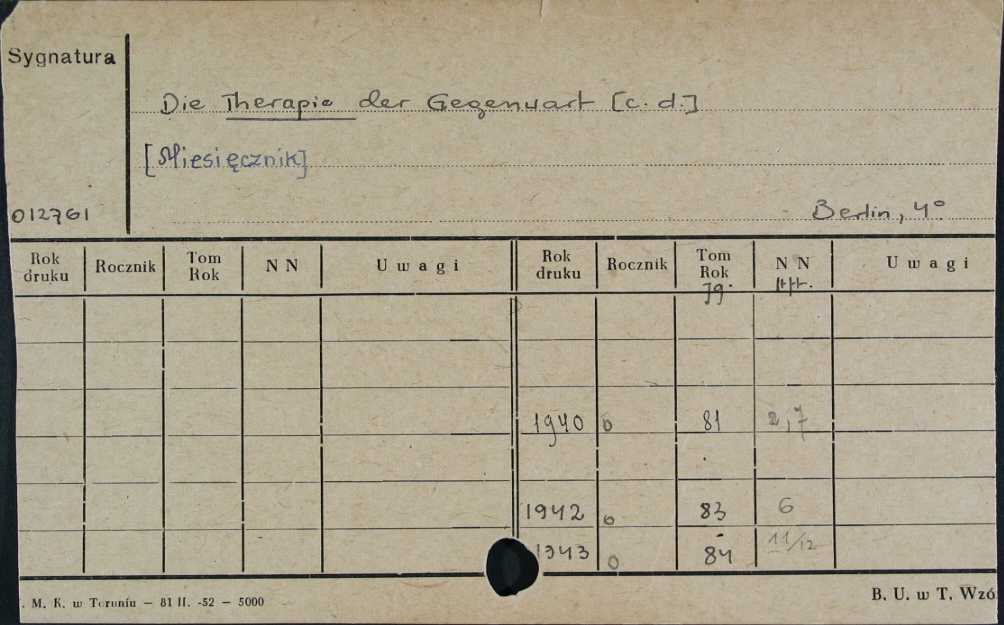 Sygnatura
Die Therapie der Gegenwart [c. d.]
[Miesięcznik]
012761
Berlin, 4°
Rok druku Rocznik Tom Rok NN Uwagi Rok druku Rocznik Tom Rok NN Uwagi
Jg.
1940 o 81 2,7
1942 o 83 6
1943 o 84 11/12
. M. K. w Toruniu — 81 II. -52 — 5000
B. U. w T. Wzó